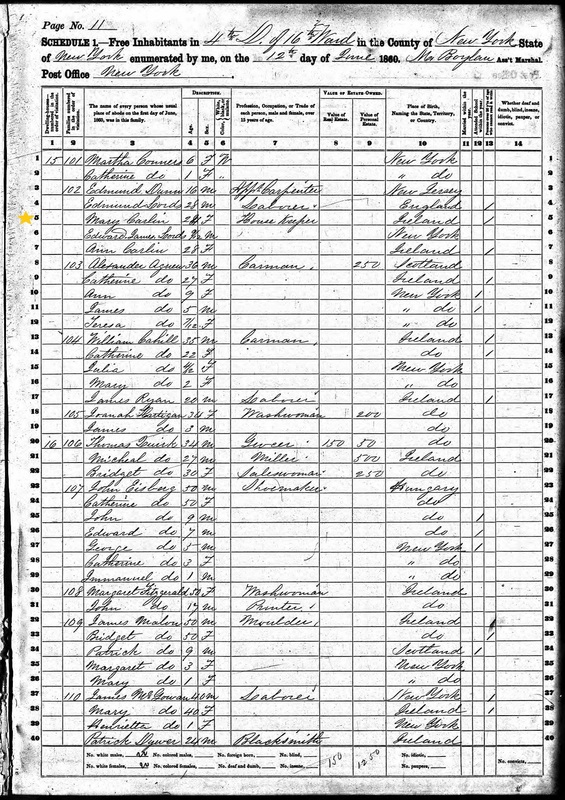 Page No. 11
SCHEDULE 1.—Free Inhabitants in 4th D. of 16th Ward in the County of New York State
of New York enumerated by me, on the 12th day of June 1860. Mr Boylan Ass't Marshal.
Post Office New York
DESCRIPTION.
VALUE OF ESTATE OWNED.
The name of every person whose usual place of abode on the first day of June, 1860, was in this family.
Age.
Sex.
Profession, Occupation, or Trade of each person, male and female, over 15 years of age.
Value of Real Estate.
Value of Personal Estate.
Place of Birth, Naming the State, Territory, or Country.
Whether deaf and dumb, blind, insane, idiotic, pauper, or convict.
1 2 3 4 5 6 7 8 9 10 11 12 13 14
1 15 101 Martha Conners 6 F W New York
2 Catherine do 1 F " " do
3 102 Edmund Dunn 16 m App Carpenter New Jersey
4 Edmund Lords 28 m Laborer England 1
5 Mary Carlin 24 F House Keeper Ireland 1
6 Edward James Lords m New York
7 Ann Carlin 28 F Ireland 1
8 103 Alexander Agnew 36 m Carman 250 Scotland
9 Catherine do 27 F Ireland 1
10 Ann do 9 F New York 1
11 James do 5 m " do 1
12 Teresa do 7/12 F " do
13 104 William Cahill 35 m Carman Ireland 1
14 Catherine do 22 F do 1
15 Julia do F New York
16 Mary do 2 F " do
17 James Ryan 20 m Laborer Ireland 1
18 105 Joanah Hartigan 34 F Washwoman 200 do
19 James do 3 m do
20 16 106 Thomas Quirk 34 m Grocer 150 50 do
21 Micheal do 27 m Miller 500 Ireland
22 Bridget do 30 F Saleswoman 250 do
23 107 John Eisberg 50 m Shoemaker Hungary
24 Catherine do 50 F do
25 John do 9 m do 1
26 Edward do 7 m do 1
27 George do 5 m New York 1
28 Catherine do 3 F " do
29 Immanuel do 1 m " do
30 108 Margaret Fitzgerald 50 F Washwoman Ireland
31 John do 17 m Printer do
32 109 James Malon 50 m Moulder Ireland
33 Bridget do 50 F do 1
34 Patrick do 9 m Scotland 1
35 Margaret do 3 F New York
36 Mary do 1 F " do
37 110 James McGowan 40 m Laborer New York 1
38 Mary do 40 F Ireland 1
39 Henrietta do 1 F New York
40 Patrick Dywer 24 m Blacksmith Ireland
No. white males, No. colored males, No. foreign born, No. blind, 150 1250 No. idiotic, No. convicts,
No. white females, No. colored females, No. deaf and dumb, No. insane, No. paupers,